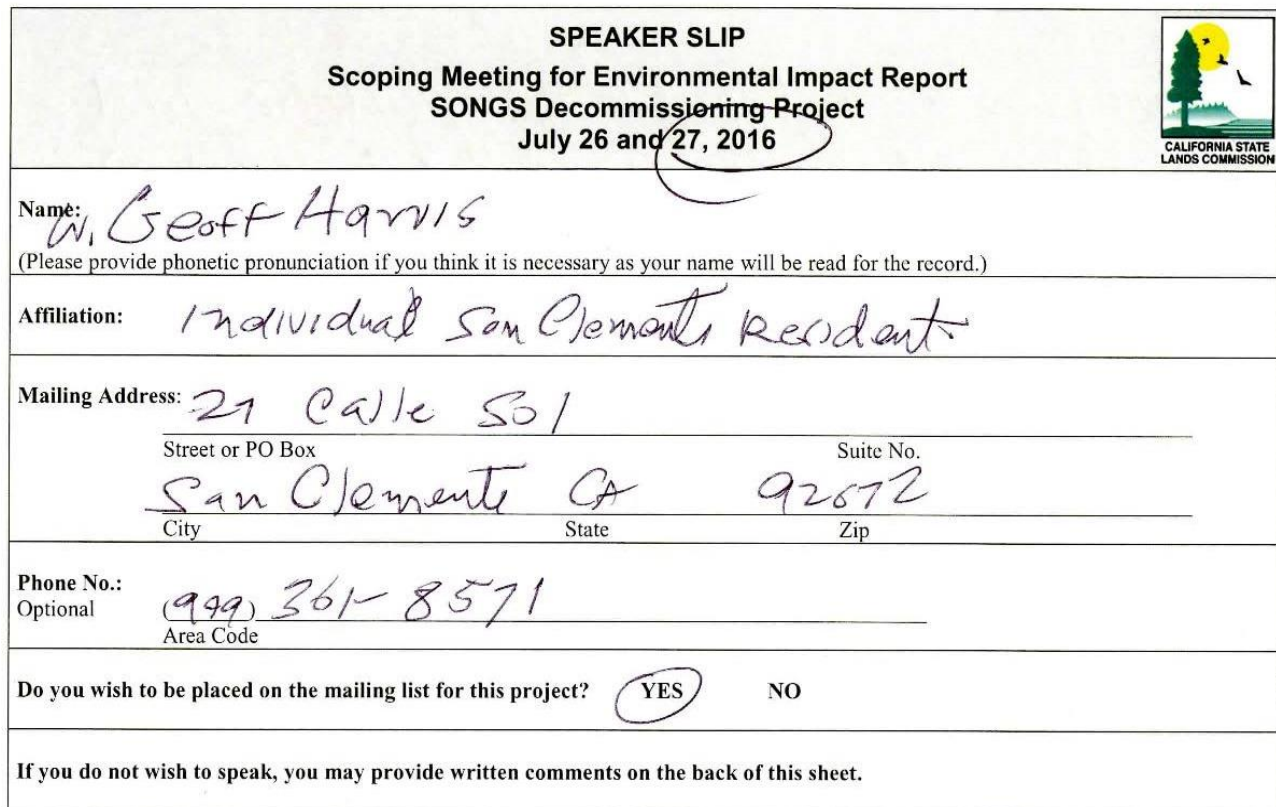 SPEAKER SLIP
Scoping Meeting for Environmental Impact Report
SONGS Decommissioning Project
July 26 and 27, 2016
CALIFORNIA STATE
LANDS COMMISSION
Name: W. Geoff Harris
(Please provide phonetic pronunciation if you think it is necessary as your name will be read for the record.)
Affiliation: Individual San Clemente Resident
Mailing Address: 27 Calle Sol
Street or PO Box Suite No.
San Clemente CA 92672
City State Zip
Phone No.:
Optional (949) 361-8571
Area Code
Do you wish to be placed on the mailing list for this project? YES NO
If you do not wish to speak, you may provide written comments on the back of this sheet.